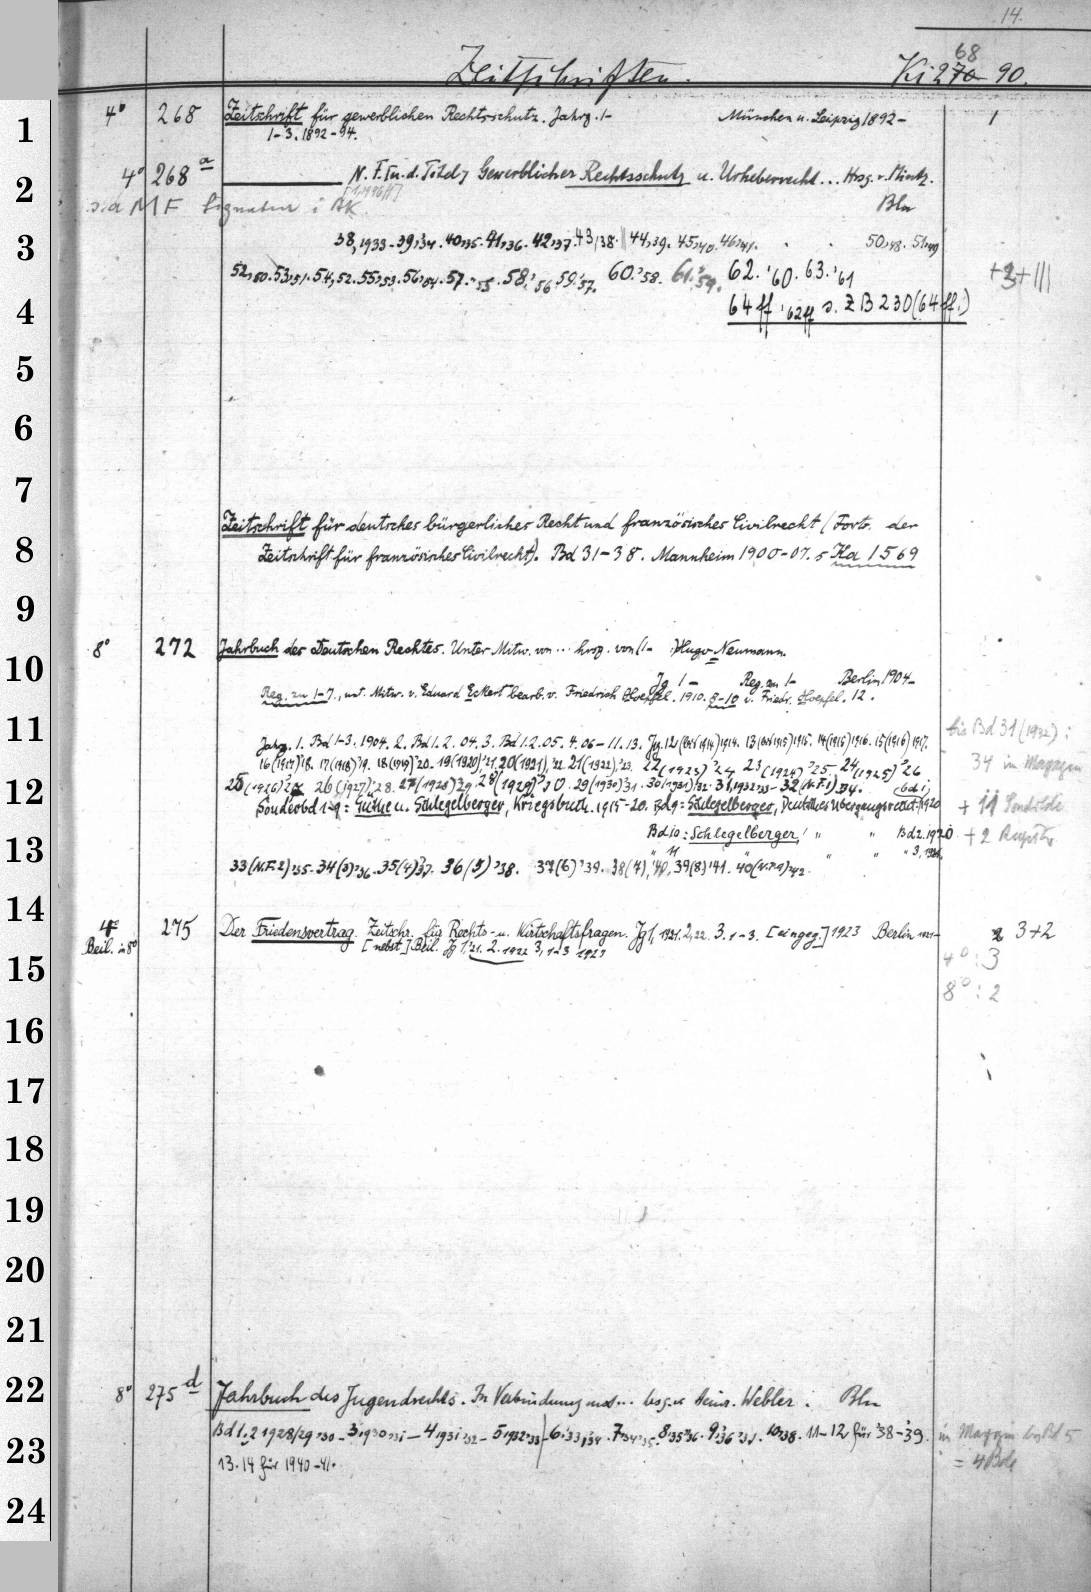 14.
Zeitschriften. Ki 270 68 - 90.
4° 268 Zeitschrift für gewerblichen Rechtsschutz. Jahrg. 1- München u. Leipzig 1892- 1
1-3. 1892-94.
4° 268 a N. F. Tit. Gewerblicher Rechtsschutz u. Urheberrecht... Hrsg. v. Mintz.
s. a MF Signatur i AK Bln
38, 1933 - 39,34 . 40,35 . 41,36 . 42,37 . 43,38 . 44,39 . 45,40 . 46,41 . 50,48 . 51,49
52,50 . 53,51 . 54,52 . 55,53 . 56,54 . 57,'55 . 58,'56 59,'57. 60.'58. 61.'59. 62.'60. 63.'61 +3+|||
64 ff '62 ff s. ZB 230 (64 ff.)
Zeitschrift für deutsches bürgerliches Recht und französisches Civilrecht (Forts. der
Zeitschrift für französisches Civilrecht). Bd 31-38. Mannheim 1900-07. s Ka 1569
8° 272 Jahrbuch des Deutschen Rechtes. Unter Mitw. von ... hrsg. von (1- ) Hugo Neumann.
Jg 1- Reg. zu 1- Berlin 1904-
Reg. zu 1-7., unt. Mitw. v. Eduard Eckert bearb. v. Friedrich Hoepfel. 1910. 8-10 v. Friedr. Hoepfel. 12.
bis Bd 31 (1932):
Jahrg. 1. Bd 1-3. 1904. 2. Bd 1.2. 04. 3. Bd 1.2. 05. 4. 06-11. 13. Jg. 12 1914. 13 1915. 14 (1915) 1916. 15 (1916) 1917.
34 in Magazin
16 (1917) '18. 17 (1918) '19. 18 (1919) '20. 19 (1920) '21. 20 (1921), '22. 21 (1922), '23. 22 (1923) '24 23 (1924) '25 24 (1925) '26
25 (1926) 26 (1927), '28. 27 (1928) '29. 28 (1929) '30. 29 (1930) '31. 30 (1931) '32. 31, 1932 '33 - 32 (N.F.1) '34.
Sonderbd 1-9: Güthe u. Schlegelberger, Kriegsbuch. 1915-20. Bd 9: Schlegelberger, Deutsches Übergangsrecht. 1920 + 11 Sonderbde
Bd 10: Schlegelberger, " " Bd 2. 1920 + 2 Register
" 11 " " " " 3, 1921.
33 (N.F. 2) '35 - 34 (3) '36. 35 (4) '37. 36 (5) '38. 37 (6) '39. 38 (7), '40, 39 (8) '41. 40 (N.F.9) '42.
4° 275 Der Friedensvertrag. Zeitschr. für Rechts- u. Wirtschaftsfragen. Jg 1, 1921. 2, 22. 3. 1-3. [eingeg.] 1923 Berlin 1921- 2 3+2
Beil. in 8° [nebst] Beil. Jg 1, '21. 2. 1922 3, 1-3 1923
4°: 3
8°: 2
8° 275 d Jahrbuch des Jugendrechts. In Verbindung mit ... hrsg. v. Heinr. Webler. Bln
Bd 1.2 1928/29 '30 - 3, 1930 '31 - 4, 1931 '32 - 5, 1932 '33 - 6, '33, '34 . 7, '34 '35. 8, '35 '36. 9, '36 '37. 10, '38. 11-12 für '38-'39. in Magazin bis Bd 5
13. 14 für 1940-41. = 4 Bde